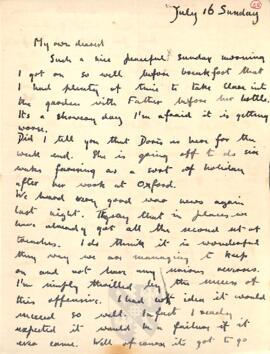 July 16 Sunday
My own dearest
Such a nice peaceful Sunday morning
I got on so well before breakfast that
I had plenty of time to take Clare into
the garden with Father before her bottle.
Its a showery day I'm afraid it is getting
worse.
Did I tell you that Doris is here for the
week end. She is going off to do six
weeks farming as a sort of holiday
after her work at Oxford.
We heard very good war news again
last night. They say that in places we
have already got all the second set of
trenches. I do think it is wonderful
the way we are managing to keep
on and not have any serious reverses.
I'm simply thrilled by the success of
this offensive. I had no idea it would
succeed so well. In fact I really
expected it would be a failure if it
ever came. Well of course its got to go